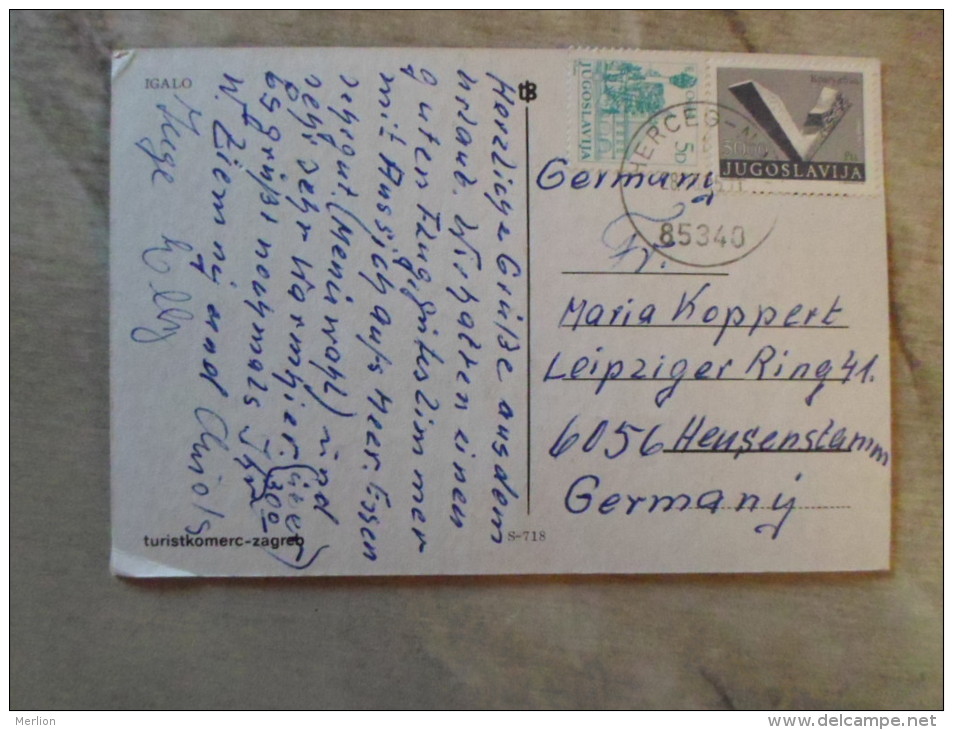 IGALO
Herzliche Grüße aus dem
Urlaub. Wir hatten einen
guten Flug, gutes Zimmer
mit Aussicht aufs Meer. Essen
sehr gut (Menüwahl) und
sehr sehr warm hier. (über 30°)
Es grüßt nochmals Ihr
W. und
turistkomerc-zagreb
S-718
JUGOSLAVIJA
50
JUGOSLAVIJA
HERCEG-
85340
Germany
Fr.
Maria Koppert
Leipziger Ring 41.
6056 Heusenstamm
Germany
Merlion
delcampe.net